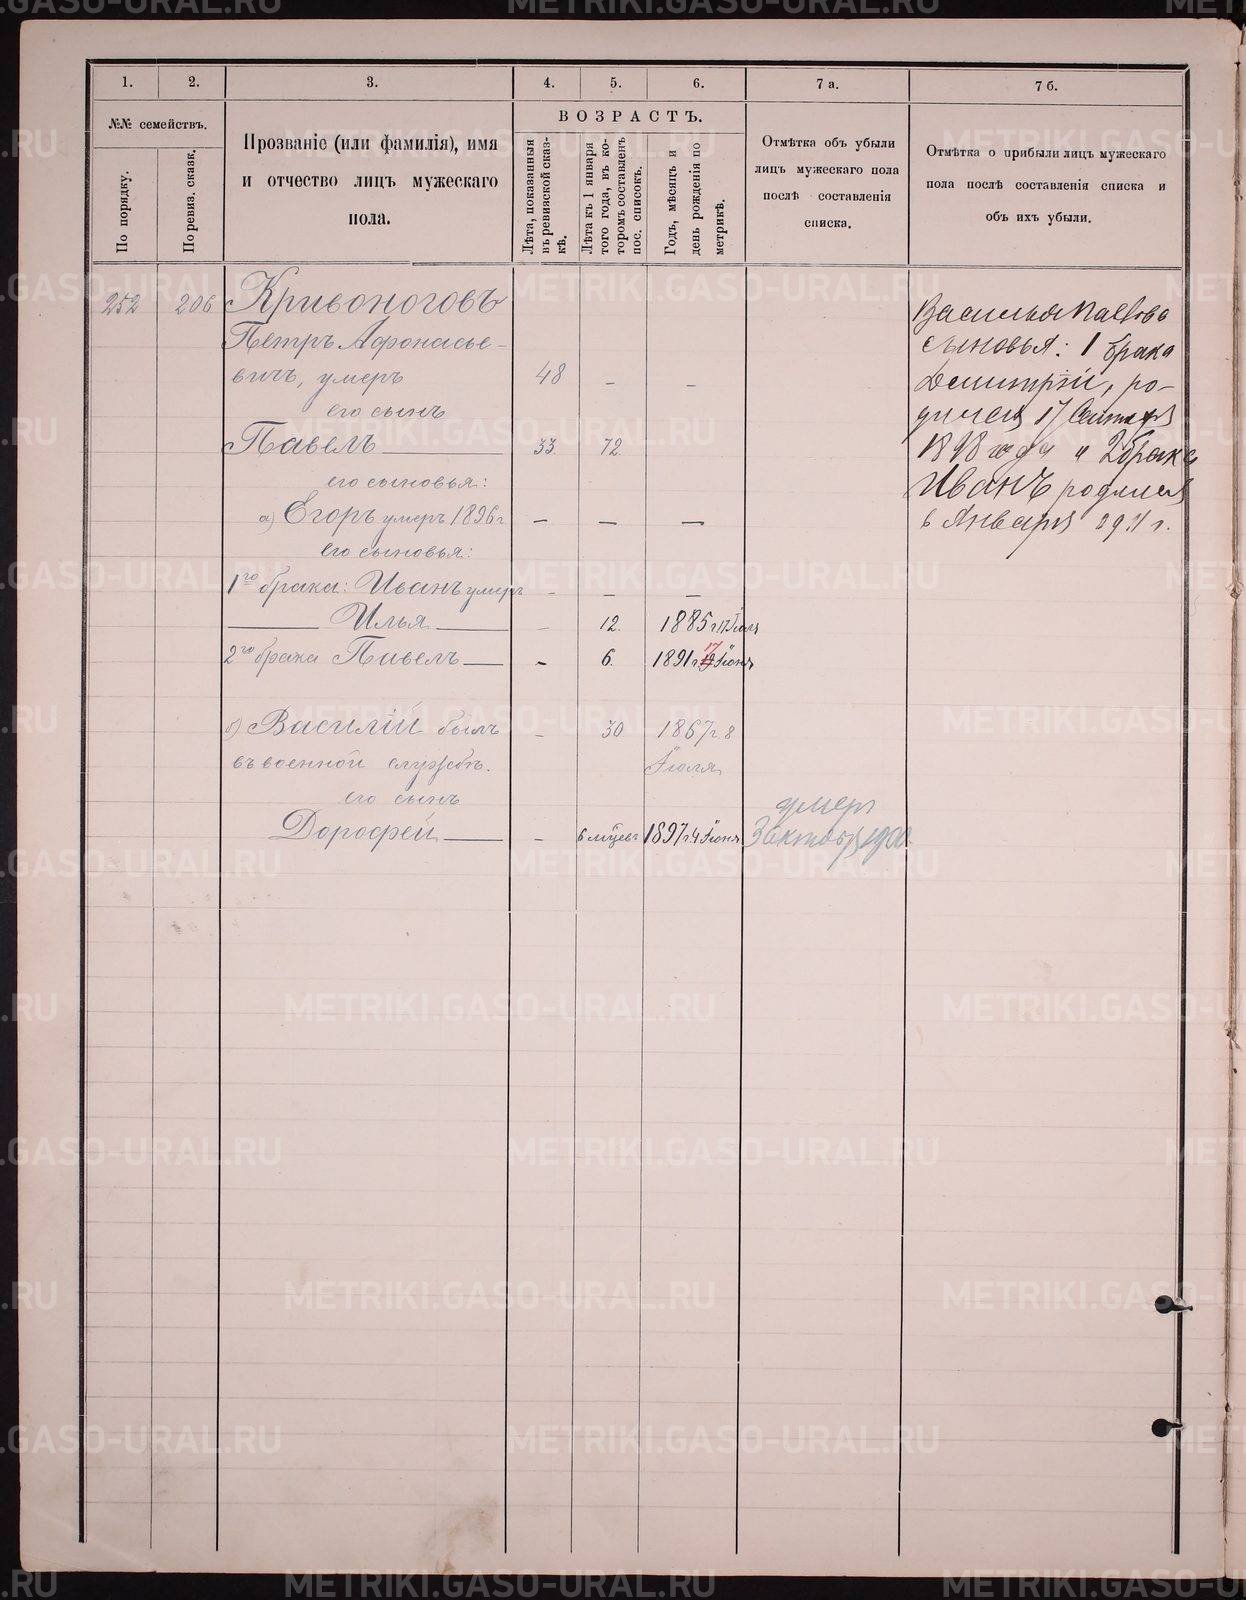 1.
2.
3.
4.
5.
6.
7 а.
7 б.
№№ семействъ.
По порядку.
По ревиз. сказк.
Прозваніе (или фамилія), имя
и отчество лицъ мужескаго
пола.
ВОЗРАСТЪ.
Лѣта, показанныя
въ ревизской сказ-
кѣ.
Лѣта къ 1 января
того года, въ ко-
торомъ составленъ
пос. списокъ.
Годъ, мѣсяцъ и
день рожденія по
метрикѣ.
Отмѣтка объ убыли
лицъ мужескаго пола
послѣ составленія
списка.
Отмѣтка о прибыли лицъ мужескаго
пола послѣ составленія списка и
объ ихъ убыли.
252 206 Кривоноговъ
Петръ Афонасье-
вичъ, умеръ 48 - -
его сынъ
Павелъ 33 72
его сыновья:
а) Егоръ умеръ 1896 г - - -
его сыновья:
1го брака: Иванъ умеръ - - -
Илья - 12. 1885 г. 17 Іюля
2го брака Павелъ - 6. 1891 г. 17 Іюня
б) Василій былъ - 30 1867 г. 8
въ военной службѣ. Іюля
его сынъ
Дорофей - 6 мѣцевъ 1897 г. 4 Іюня
умеръ
3 октября 1900 г.
Василья Павлова
сыновья: 1 брака
Димитрій, ро-
дился 17 Сентября
1898 году и 2 брака
Иванъ родился
6 Января 1911 г.
METRIKI.GASO-URAL.RU